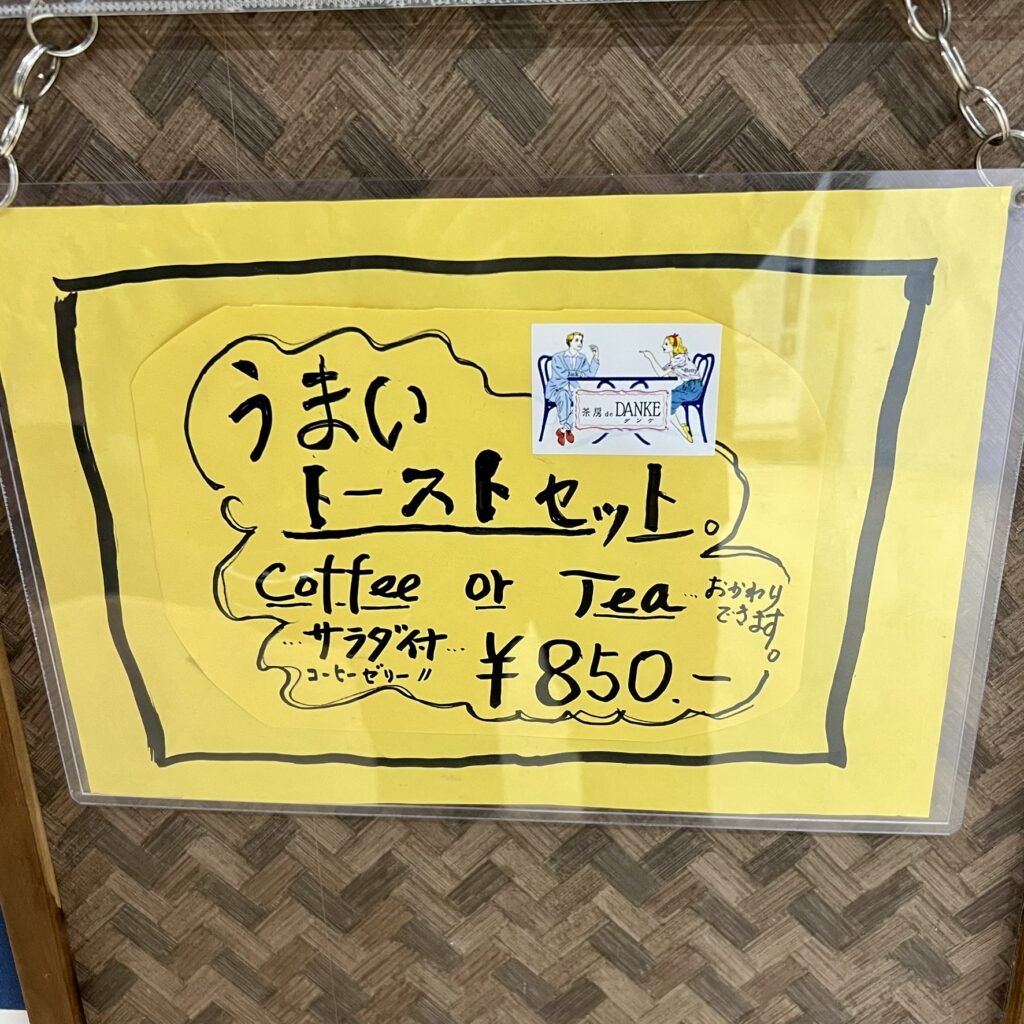 うまい
トーストセット。
Coffee or Tea
…おかわり
できます。
…サラダ付…
コーヒーゼリー〃
¥850.-
Jack
Betty
茶房 de DANKE
ダンケ